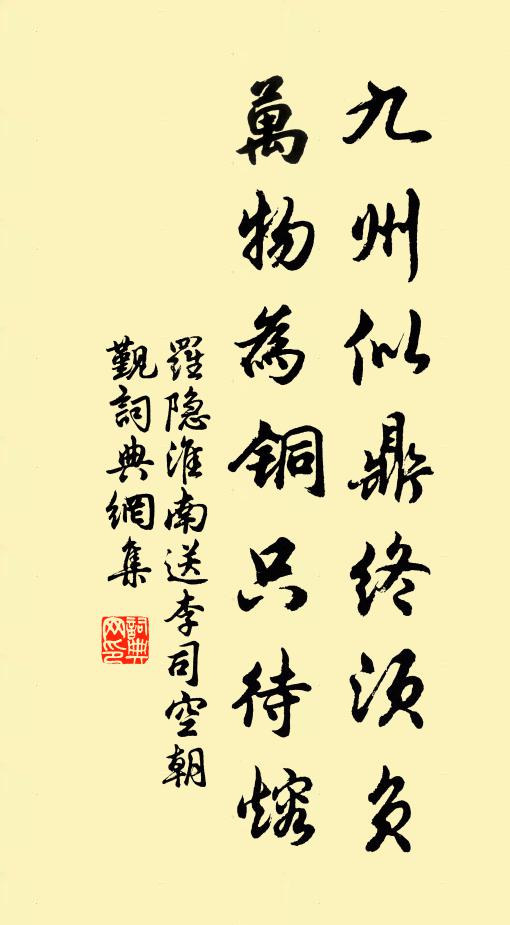 九州似鼎終須負
萬物為銅只待熔
羅隐淮南送李司空朝
觐詞典網集
詞典
网印